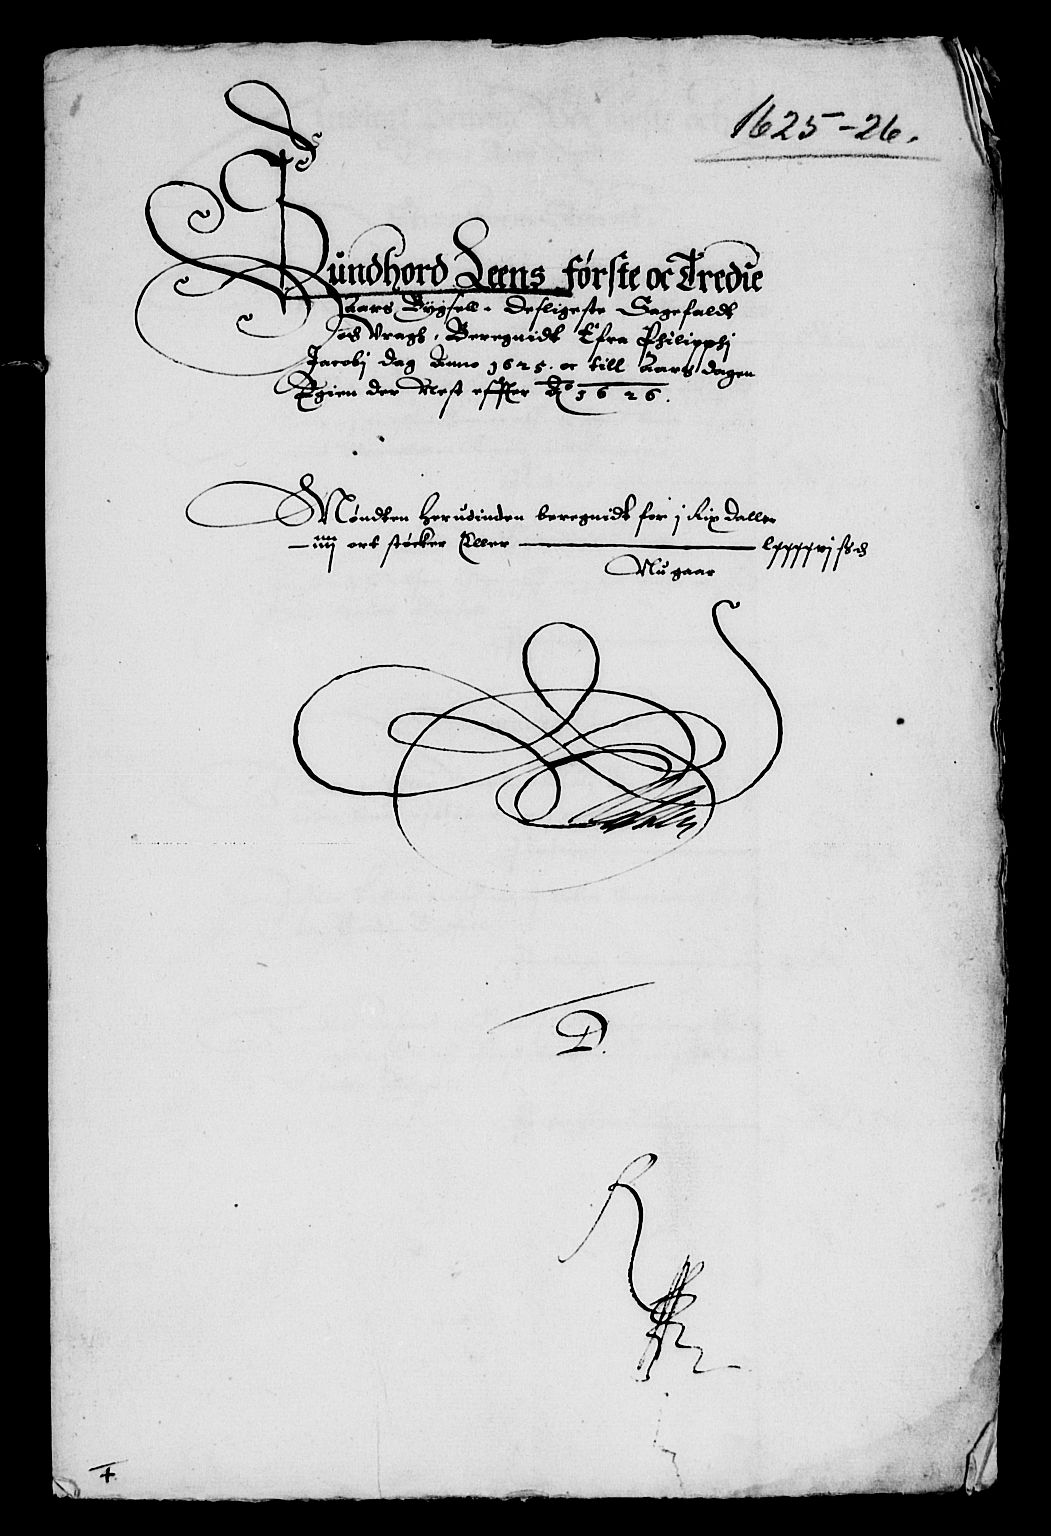 1625-26.
Sundhord Leens første oc Tredie
Aars Bygsell, desligeste Sagefaldt
och Vragh, Beregnidt ifra Philipphi
Jacobj dag Anno 1625. oc till Aars dagen
Igien der Nest effter Ao 1626.
Møndten herudinden beregnidt for j Rix daller
iiij ort støcker Eller lxxxxvj ß d
Nu gaar
D.